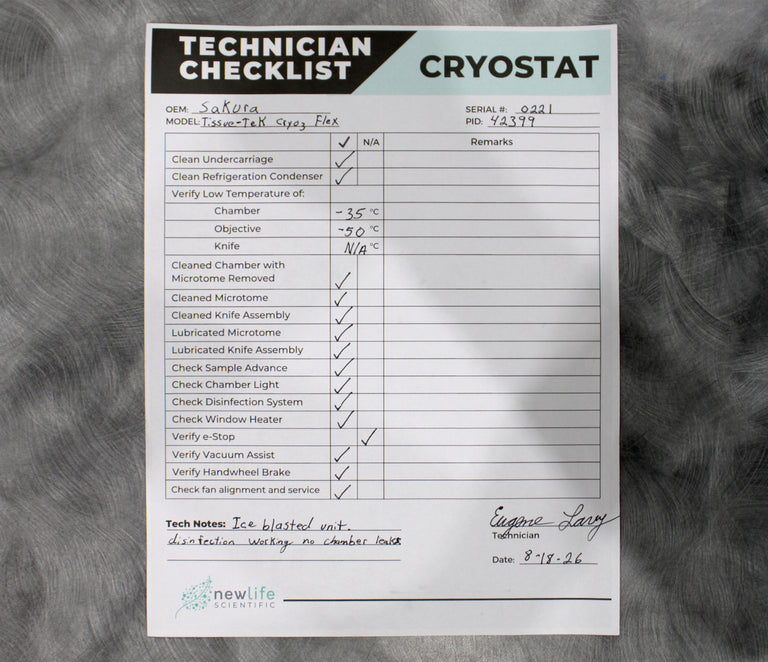 TECHNICIAN
CHECKLIST
CRYOSTAT
OEM: Sakura
SERIAL #: 0221
MODEL: Tissue-Tek Cryo3 Flex
PID: 42399
✓ N/A Remarks
Clean Undercarriage ✓
Clean Refrigeration Condenser ✓
Verify Low Temperature of:
Chamber -35 °C
Objective -50 °C
Knife N/A °C
Cleaned Chamber with
Microtome Removed ✓
Cleaned Microtome ✓
Cleaned Knife Assembly ✓
Lubricated Microtome ✓
Lubricated Knife Assembly ✓
Check Sample Advance ✓
Check Chamber Light ✓
Check Disinfection System ✓
Check Window Heater ✓
Verify e-Stop ✓
Verify Vacuum Assist ✓
Verify Handwheel Brake ✓
Check fan alignment and service ✓
Tech Notes: Ice blasted unit.
disinfection working no chamber leaks
Eugene
Technician
Date: 8-18-26
newlife
SCIENTIFIC